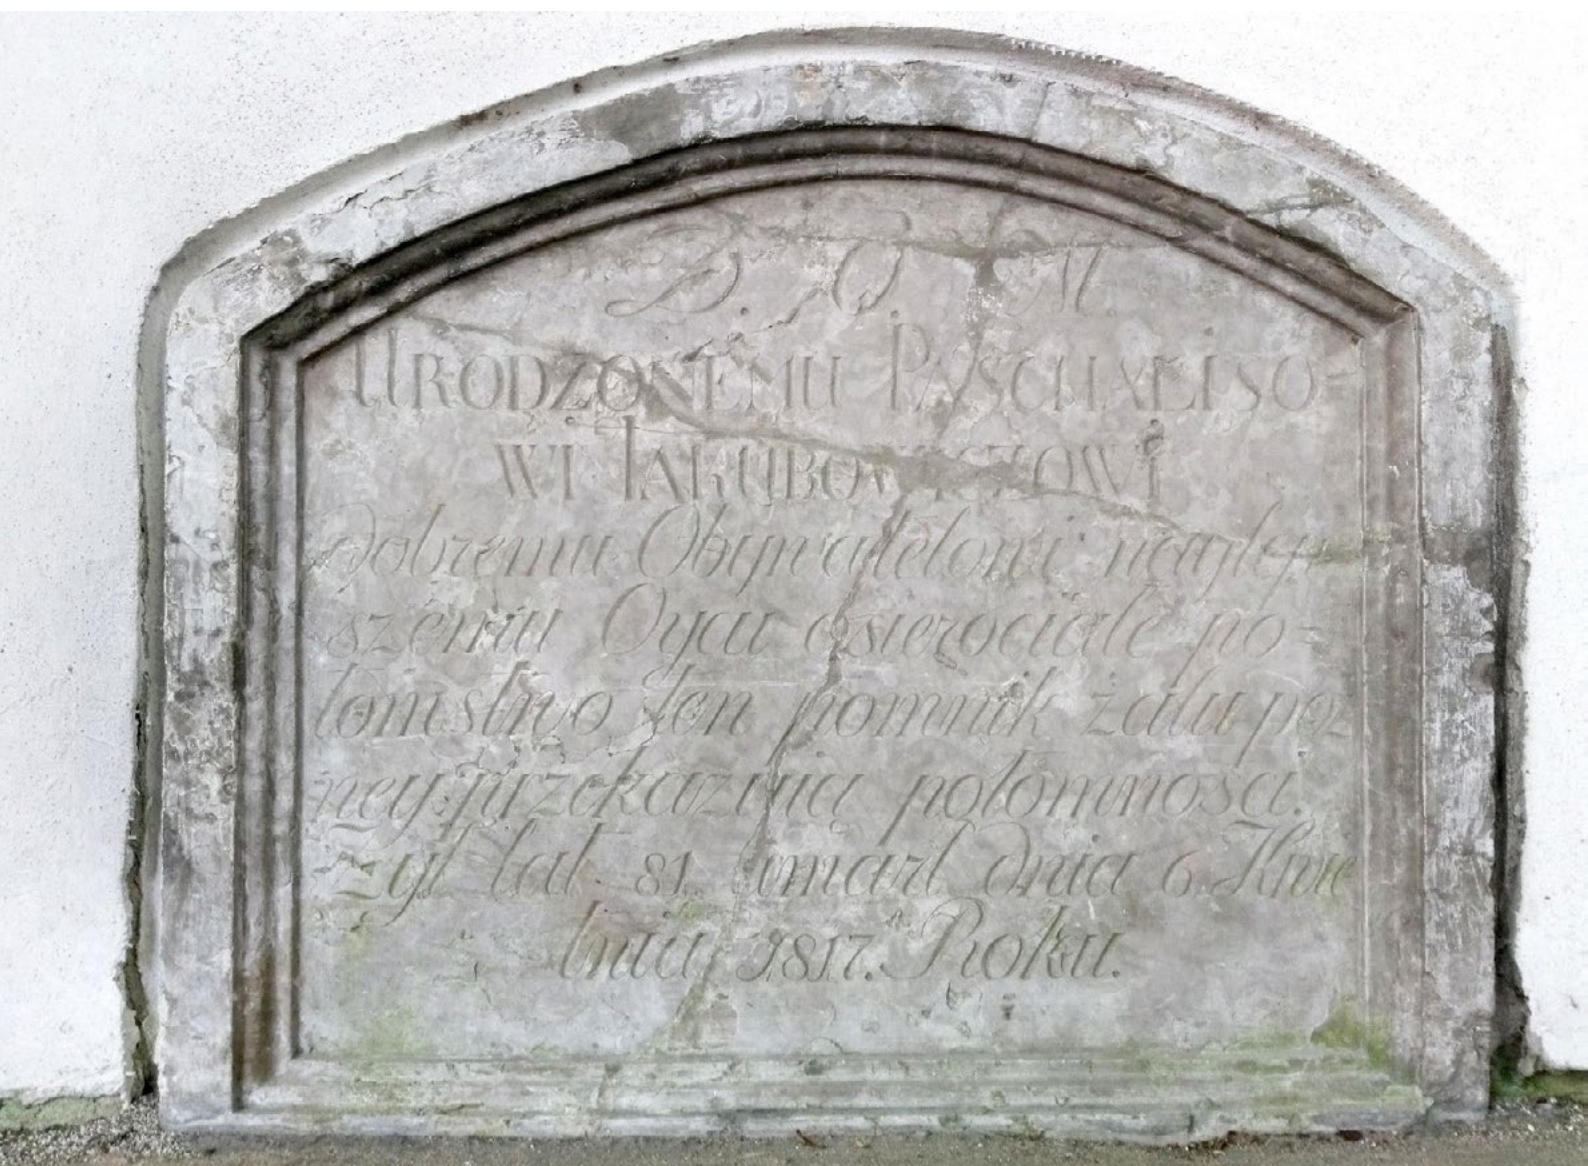 D. O. M.
URODZONEMU PASCHALISO=
WI IAKUBOWICZOWI
dobremu Obywatelowi naylep
szemu Oycu osierociałe po=
tomstwo ten pomnik żalu poz
ney przekazuią potomności.
żył lat 81. umarł dnia 6. Kwie
tnia 1817. Roku.